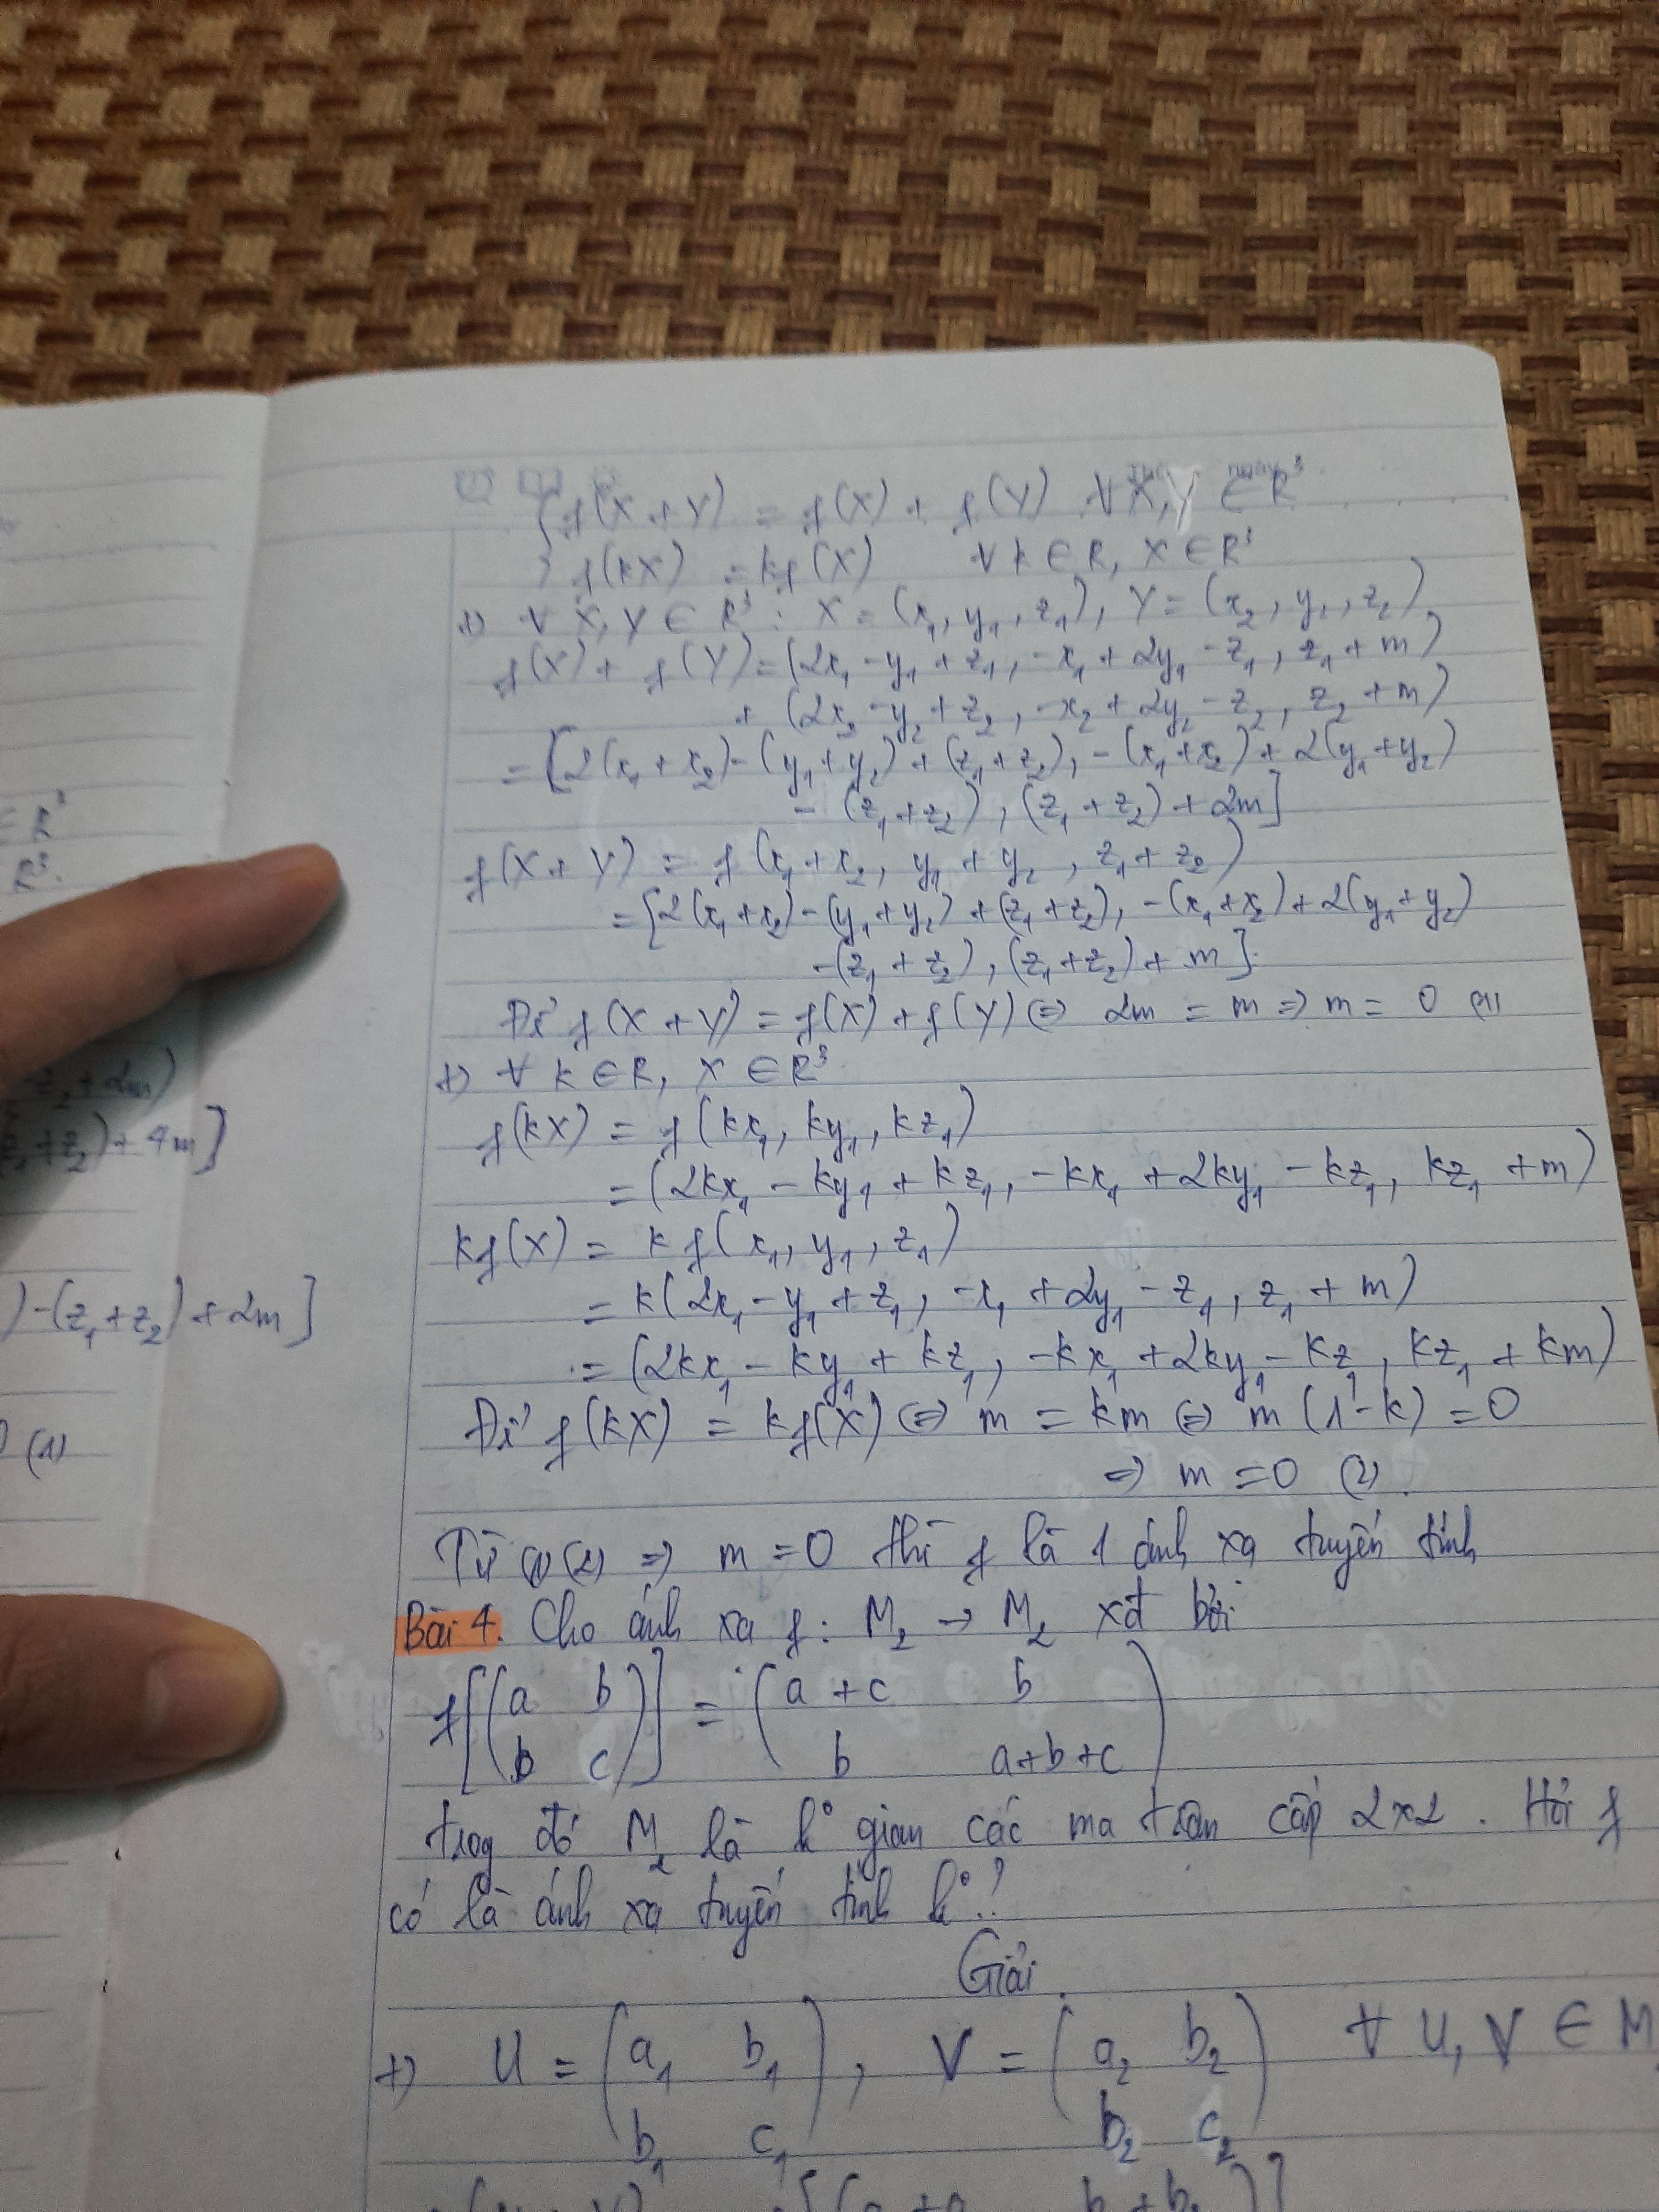 f(X+Y) = f(X) + f(Y) ∀X,Y ∈ R³
f(kX) = kf(X) ∀k ∈ R, X ∈ R³
+) ∀ X, Y ∈ R³ : X = (x₁, y₁, z₁), Y = (x₂, y₂, z₂)
f(X) + f(Y) = (2x₁ - y₁ + z₁, -x₁ + 2y₁ - z₁, z₁ + m)
+ (2x₂ - y₂ + z₂, -x₂ + 2y₂ - z₂, z₂ + m)
= [2(x₁ + x₂) - (y₁ + y₂) + (z₁ + z₂), -(x₁ + x₂) + 2(y₁ + y₂)
- (z₁ + z₂), (z₁ + z₂) + 2m]
f(X + Y) = f(x₁ + x₂, y₁ + y₂, z₁ + z₂)
= [2(x₁ + x₂) - (y₁ + y₂) + (z₁ + z₂), -(x₁ + x₂) + 2(y₁ + y₂)
-(z₁ + z₂), (z₁ + z₂) + m].
Để f(X + Y) = f(X) + f(Y) ⇔ 2m = m ⇒ m = 0 (1)
+) ∀ k ∈ R, X ∈ R³
f(kX) = f(kx₁, ky₁, kz₁)
= (2kx₁ - ky₁ + kz₁, -kx₁ + 2ky₁ - kz₁, kz₁ + m)
kf(X) = k f(x₁, y₁, z₁)
= k(2x₁ - y₁ + z₁, -x₁ + 2y₁ - z₁, z₁ + m)
= (2kx₁ - ky₁ + kz₁, -kx₁ + 2ky₁ - kz₁, kz₁ + km)
Để f(kX) = kf(X) ⇔ m = km ⇔ m(1-k) = 0
⇒ m = 0 (2).
Từ (1)(2) ⇒ m = 0 thì f là 1 ánh xạ tuyến tính
Bài 4. Cho ánh xạ f: M₂ → M₂ xđ bởi
f[(a b)] = (a + c b)
b c b a+b+c
trog đó M₂ là k° gian các ma trận cấp 2x2. Hỏi f
có là ánh xạ tuyến tính k°?
Giải.
+) U = (a₁ b₁), V = (a₂ b₂) ∀ U, V ∈ M
b₁ c₁ b₂ c₂
z₂ + 2m)
+ z₂) + 4m]
) - (z₁ + z₂) + 2m]
(1)